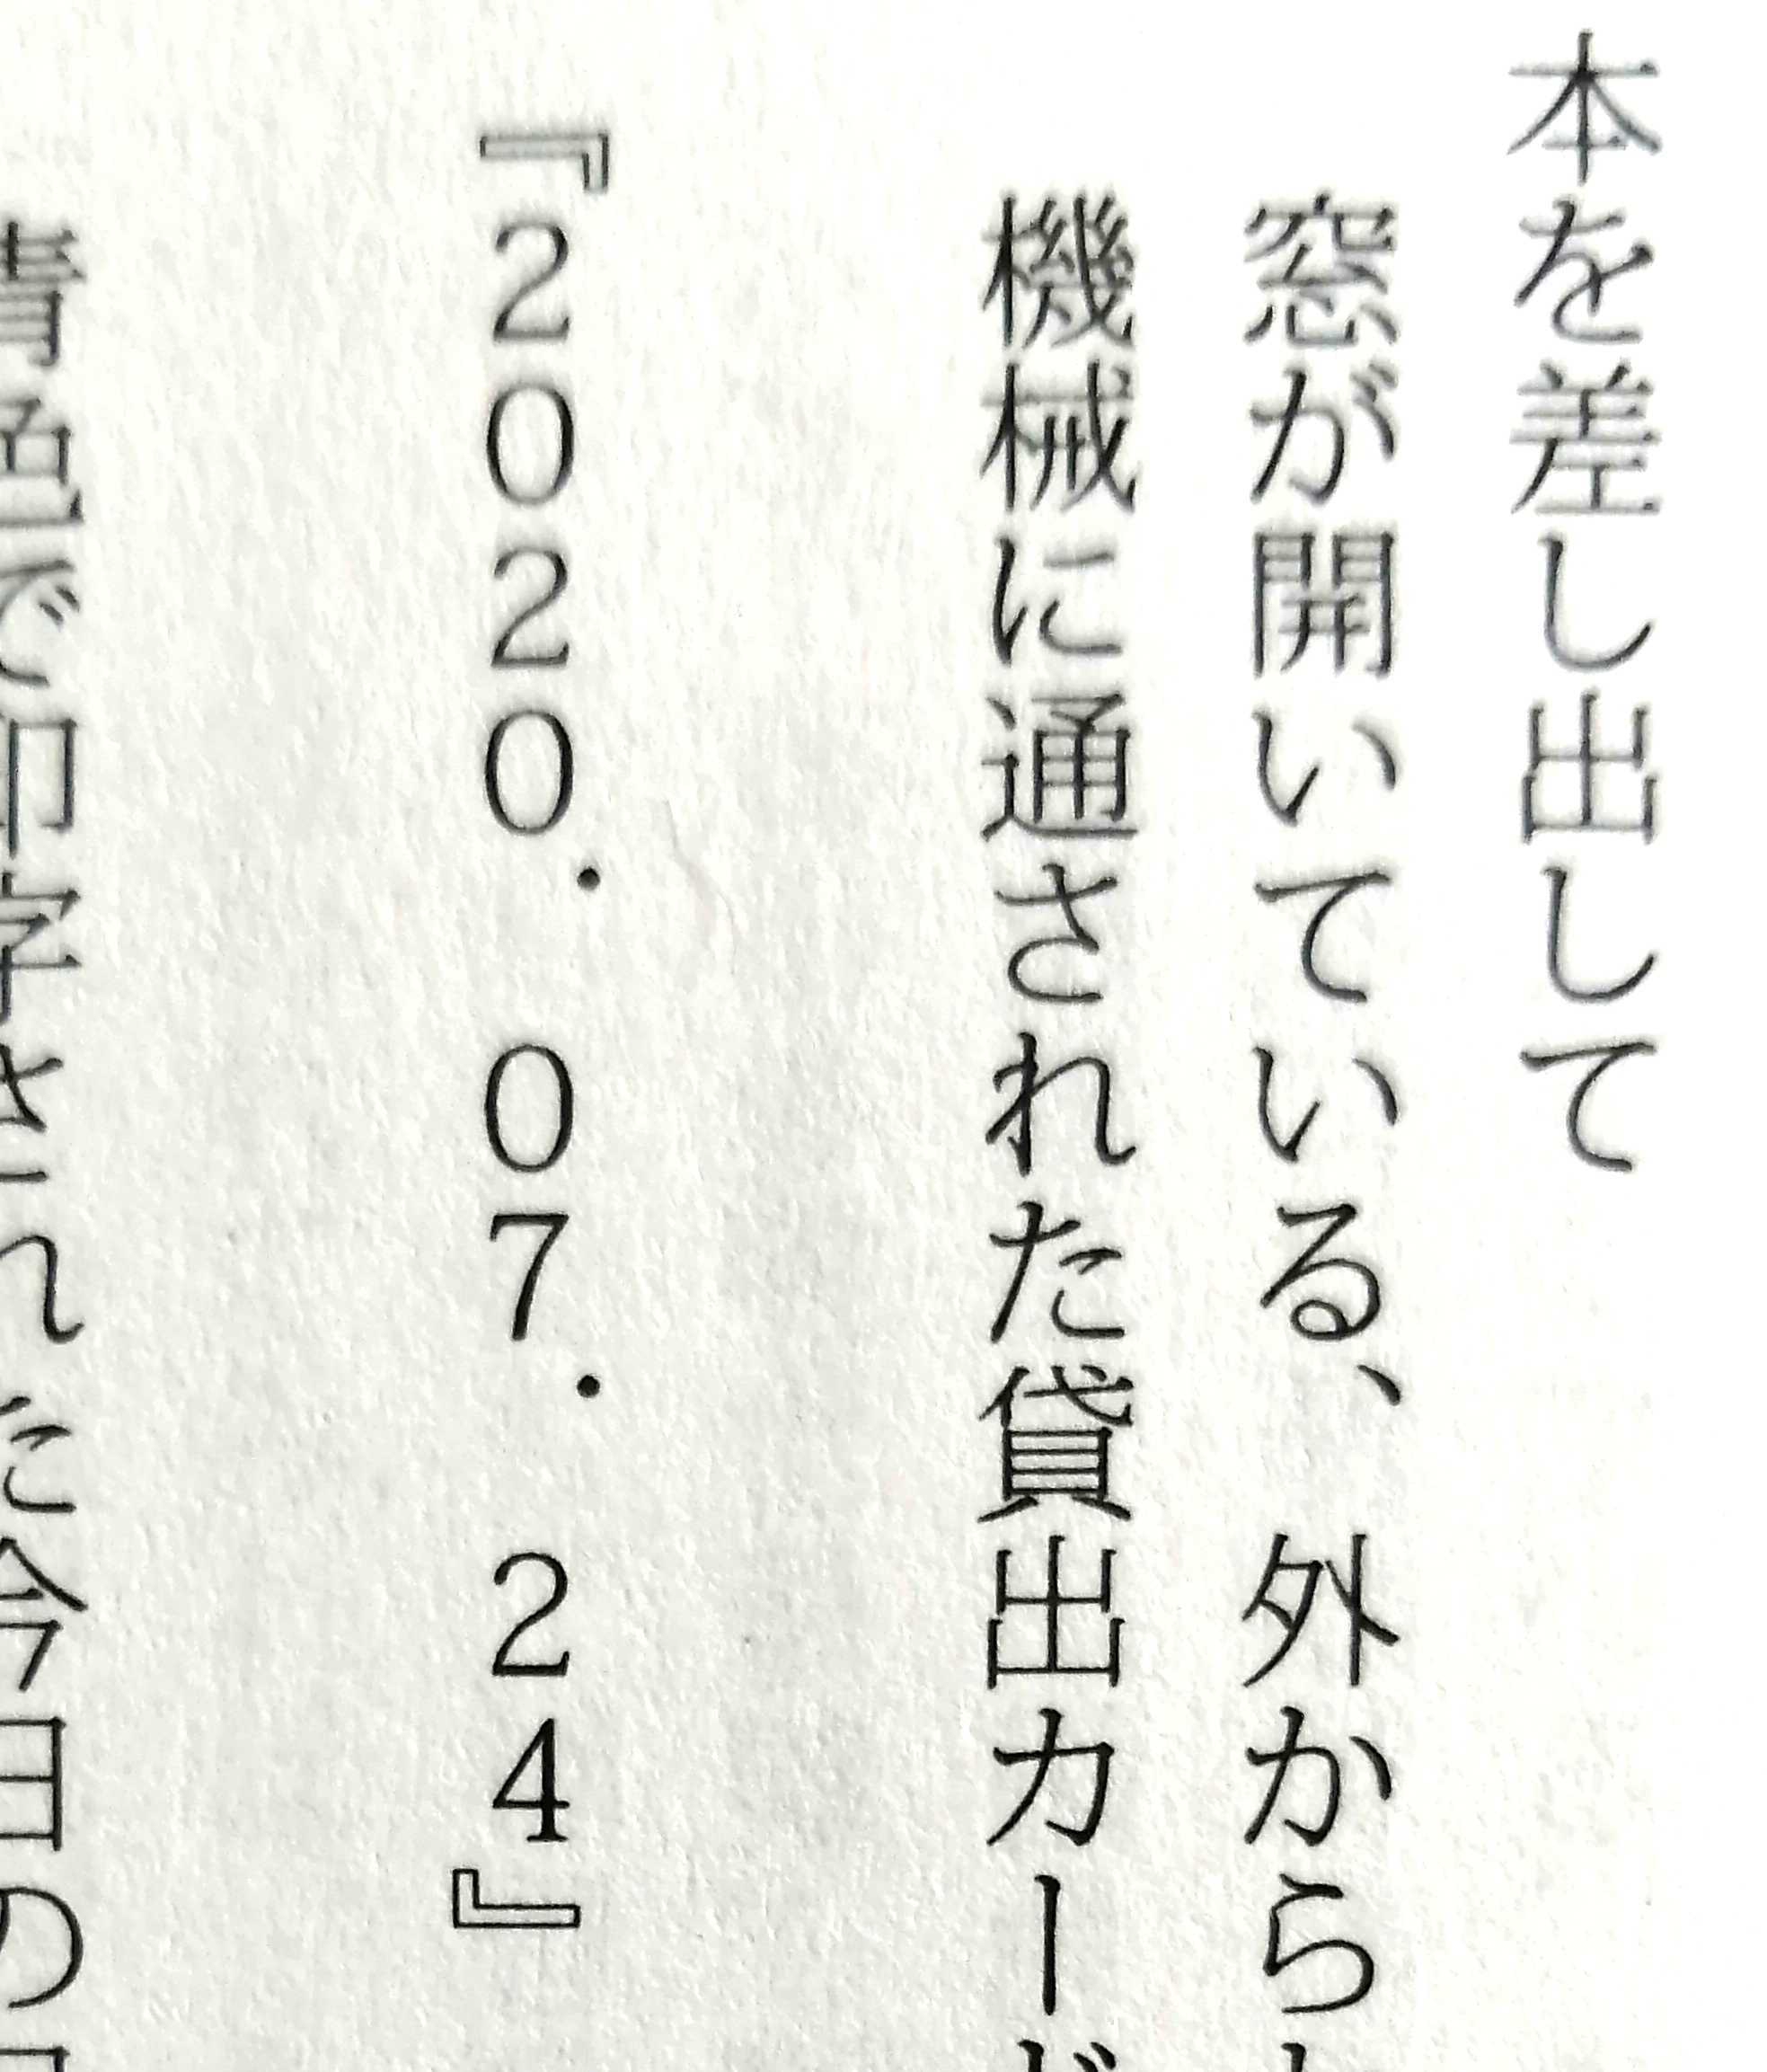 本を差し出して
窓が開いている、外から
機械に通された貸出カード
『2020．07．24』
青色で印字された今日の